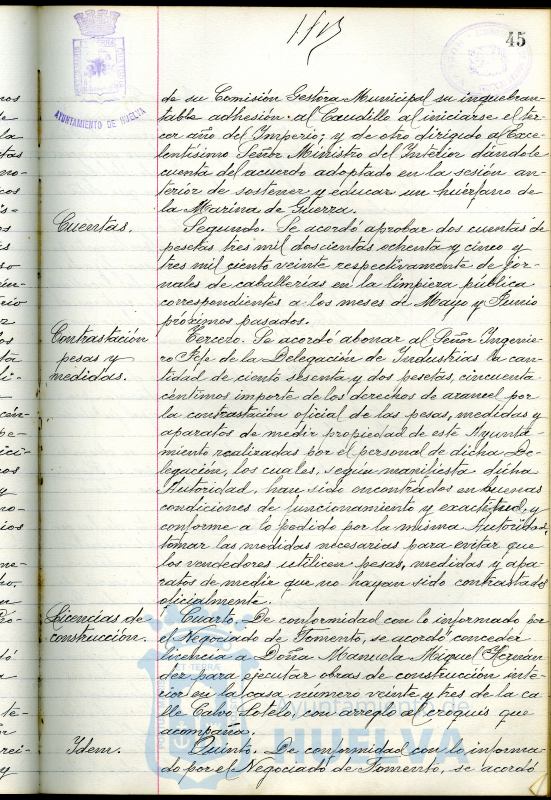 45
AYUNTAMIENTO DE HUELVA
de su Comisión Gestora Municipal su inquebran-
table adhesión al Caudillo al iniciarse el ter-
cer año del Imperio; y de otro dirigido al Exce-
lentísimo Señor Ministro del Interior dándole
cuenta del acuerdo adoptado en la sesión an-
terior de sostener y educar un huérfano de
la Marina de Guerra.
Cuentas. Segundo. Se acordó aprobar dos cuentas de
pesetas tres mil doscientas ochenta y cinco y
tres mil ciento veinte respectivamente de jor-
nales de caballerías en la limpieza pública
correspondientes a los meses de Mayo y Junio
próximos pasados.
Contrastación Tercero. Se acordó abonar al Señor Ingenie-
pesas y ro Jefe de la Delegación de Industrias la can-
medidas. tidad de ciento sesenta y dos pesetas, cincuenta
céntimos importe de los derechos de arancel por
la contrastación oficial de las pesas, medidas y
aparatos de medir propiedad de este Ayunta-
miento realizadas por el personal de dicha De-
legación, los cuales, según manifiesta dicha
Autoridad, han sido encontrados en buenas
condiciones de funcionamiento y exactitud, y
conforme a lo pedido por la misma Autoridad
tomar las medidas necesarias para evitar que
los vendedores utilicen pesas, medidas y apa-
ratos de medir que no hayan sido contrastados
oficialmente.
Licencias de Cuarto. De conformidad con lo informado por
construcción. el Negociado de Fomento, se acordó conceder
licencia a Doña Manuela Miguel Hernán-
dez para ejecutar obras de construcción inte-
rior en la casa número veinte y tres de la ca-
lle Calvo Sotelo, con arreglo al croquis que
acompaña.
Idem. Quinto. De conformidad con lo informa-
do por el Negociado de Fomento, se acordó
Ayuntamiento de
HUELVA